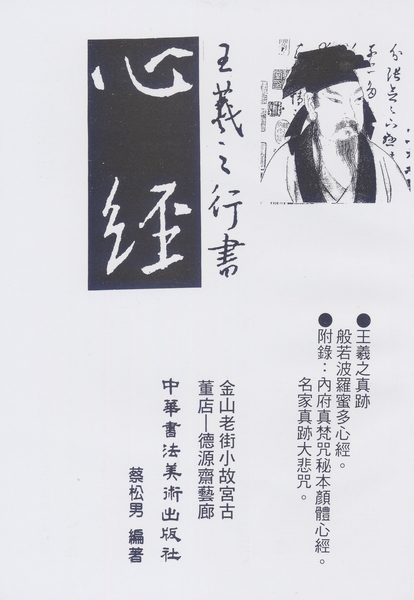 王羲之行書
心經
●王羲之真跡
般若波羅蜜多心經。
●附錄：內府真梵咒秘本顏體心經。
名家真跡大悲咒。
金山老街小故宮古
董店—德源齋藝廊
中華書法美術出版社
蔡松男 編著